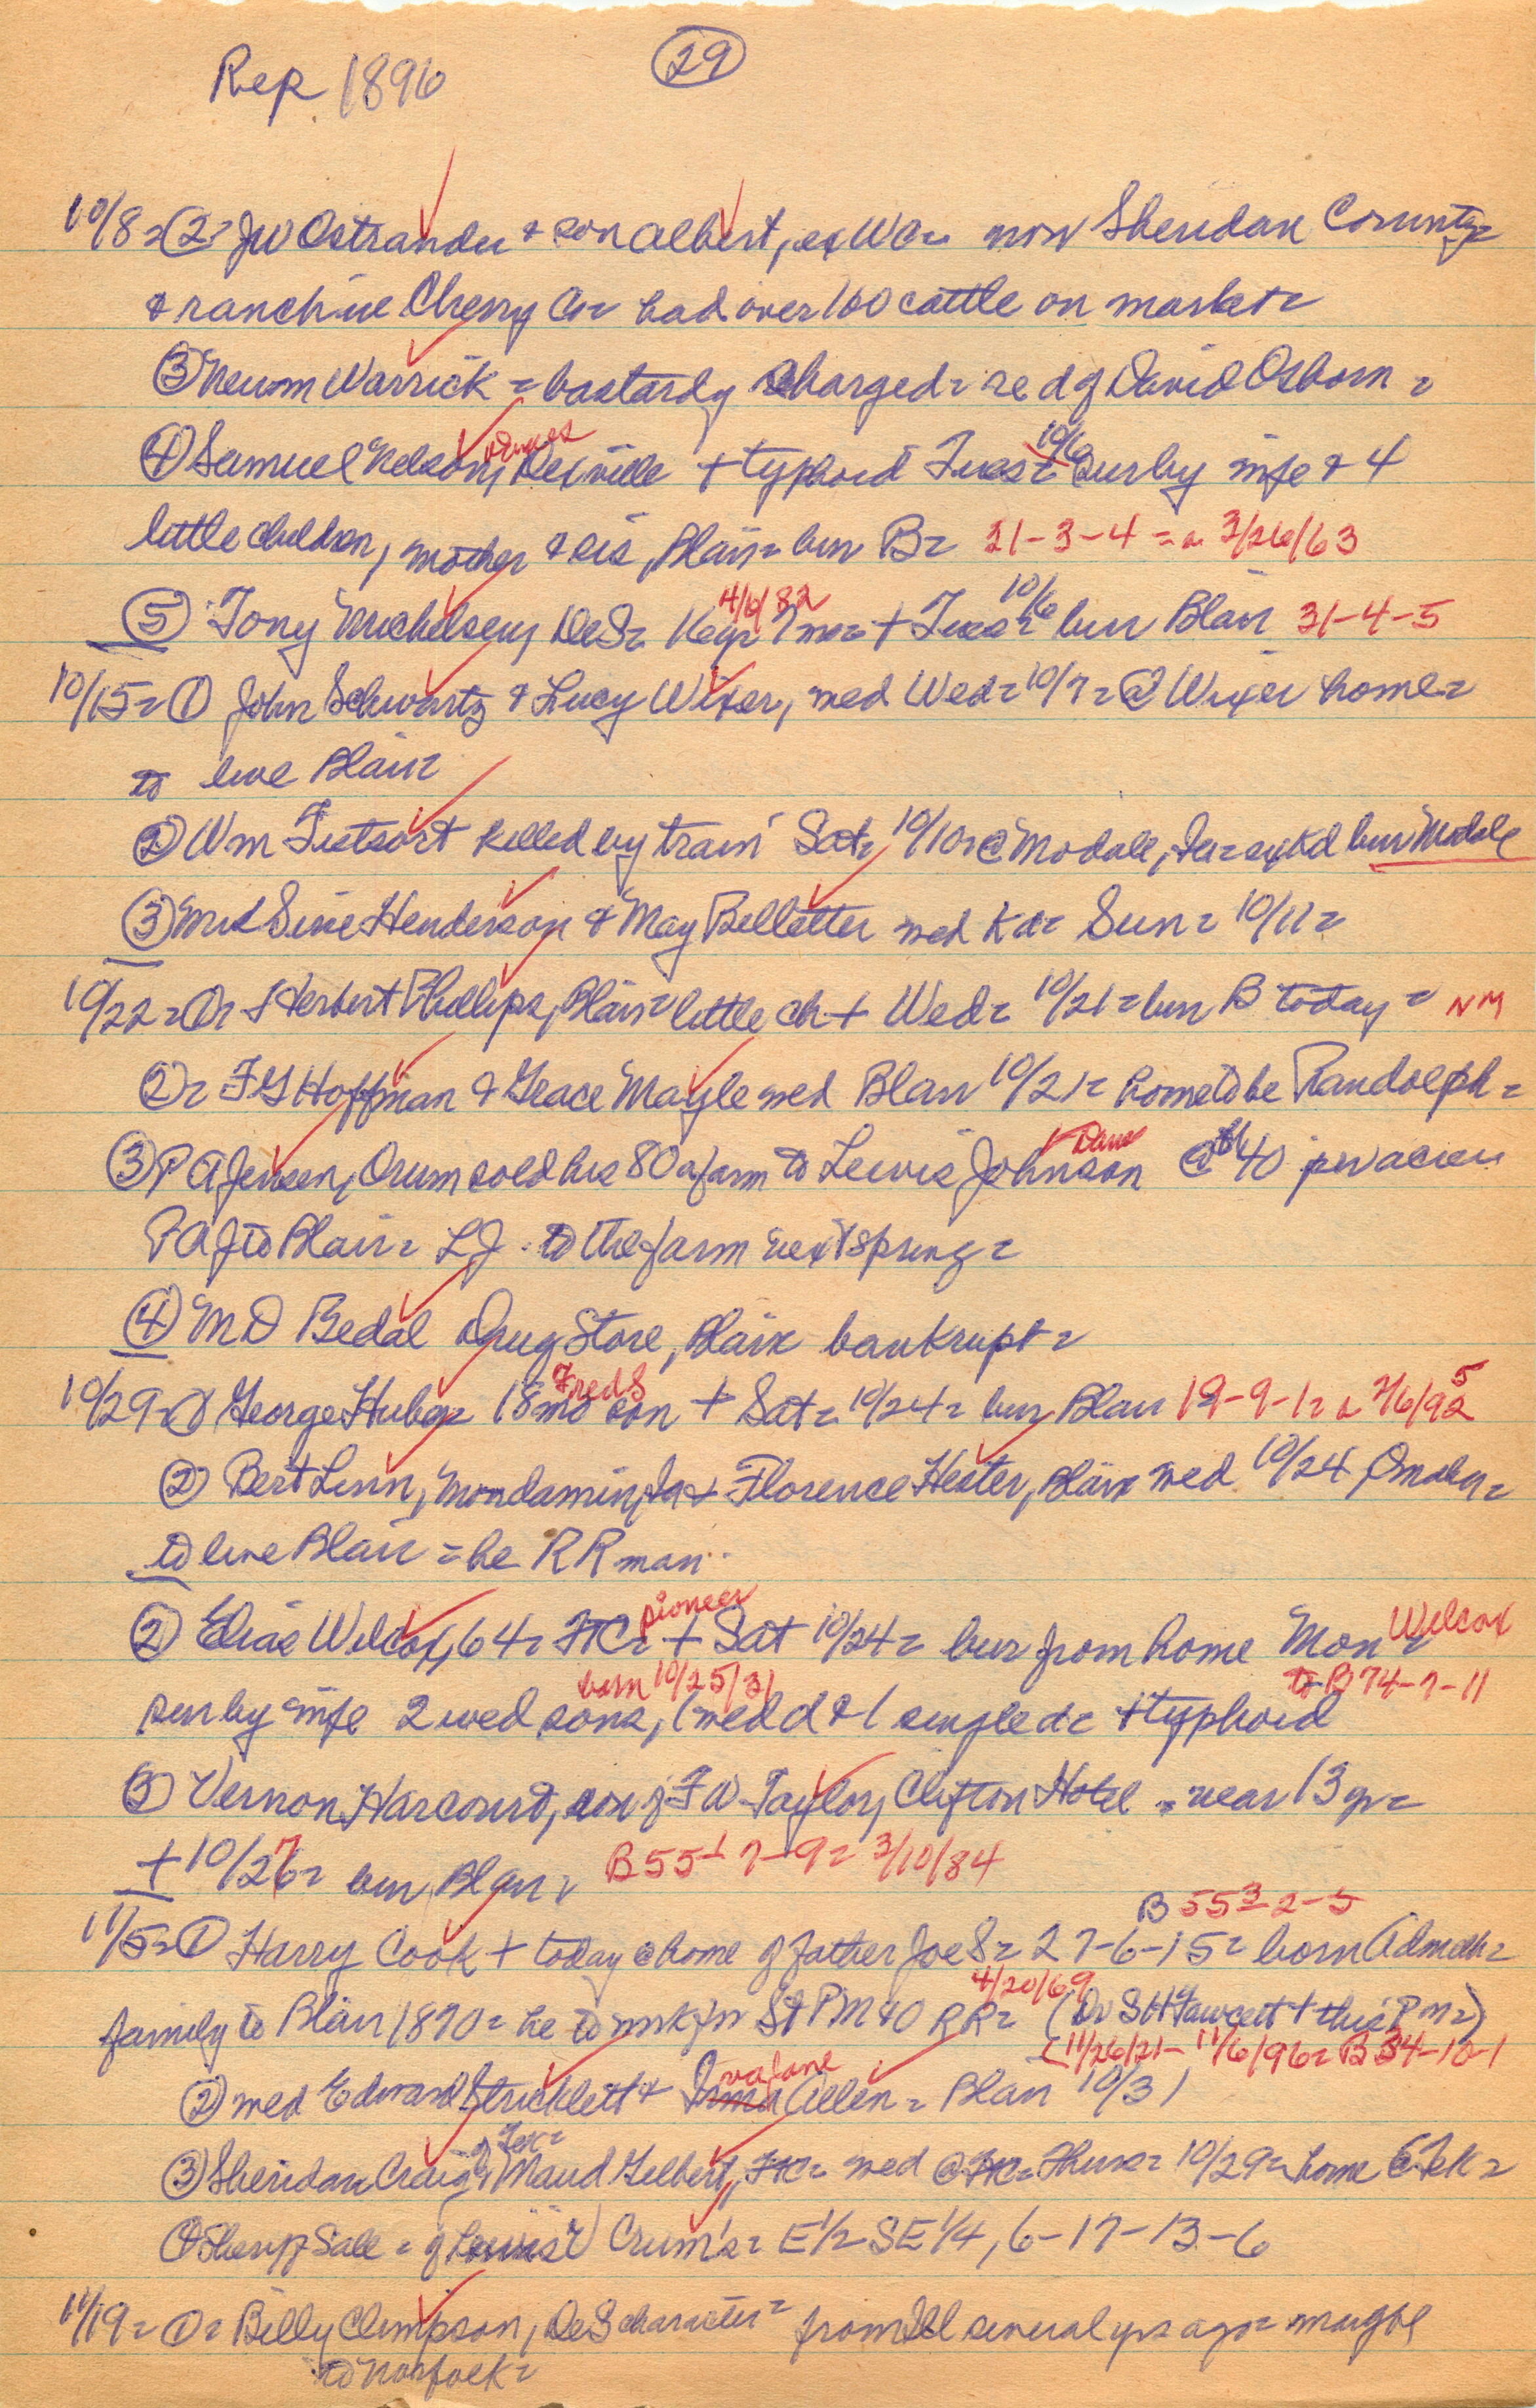 Rep 1896
29
10/8 = (2) = JW Ostrander & son Albert, ex WC = now Sheridan County =
& ranch in Cherry Co = had over 160 cattle on market =
(3) Warrick = bastardy charged = re d of David Osborn =
(4) Samuel Nelson, druggist + typhoid Tues = 10/6 sur by wife & 4
little children, mother & sis, Blair = bur B = 21-3-4 = 3/26/63
(5) Tony Michelsen, DeS = 4/6/82 + Tues = 10/6 bur Blair 31-4-5
10/15 = (1) John Schwartz & Lucy Wixer, med Wed = 10/7 = @ Wixer home =
to live Blair =
(2) Wm Tietsort killed by train Sat = 10/10 = @ Modale, Ia = bur Modale
(3) Henderson & May Belletter med Ka = Sun = 10/11 =
10/22 = (1) = Herbert Phillips, Blair = little ch + Wed = 10/21 = bur B today = NM
(2) = FG Hoffman & Grace Mayle med Blair 10/21 = home to be Randolph =
(3) P A Jensen, Orum sold his 80 a farm to Lewis Johnson Dane @ $40 per acre
PAJ to Blair = LJ to the farm next spring =
(4) M D Bedal Drug Store, Blair bankrupt =
10/29 = (1) George Huber = 18 mo son Fred S + Sat = 10/24 = bur Blair 19-9-1 =
(2) Bert Linn, Mondamin, Ia & Florence Hester, Blair med 10/24 Omaha =
to live Blair = he RR man
(2) Elias Wilcox, 64 = FtC = pioneer + Sat 10/24 = bur from home Mon = Wilcox
born 10/25/31 to B 74-7-11
sur by wife 2 med sons, 1 med d & 1 single d = + typhoid
(3) Vernon Harcourt, son of FW Taylor, Clifton Hotel = near 13 yr =
+ 10/27 = bur Blair = 7-9 = 3/10/84
B 55
11/5 = (1) Harry Cook + today @ home of father Joe S = 27-6-15 = born
family to Blair 1870 = he to work for St P M & O RR = 4/20/69 (Dr SH Fawcett + this Pm =)
(11/26/21 - 11/6/96 = B 34-10-1
(2) med Edward Stricklett & Iva Jane Allen = Blair 10/31
(3) Sheridan Craig of Tek = & Maud Gilbert, FtC = med @ FtC = Thurs = 10/29 = home @ Tek =
Sheriff Sale = of Crum's = E 1/2 SE 1/4, 6-17-13-6
11/19 = (1) = Billy Clempson, DeS character = from Ill several yrs ago = maybe
to Norfolk =